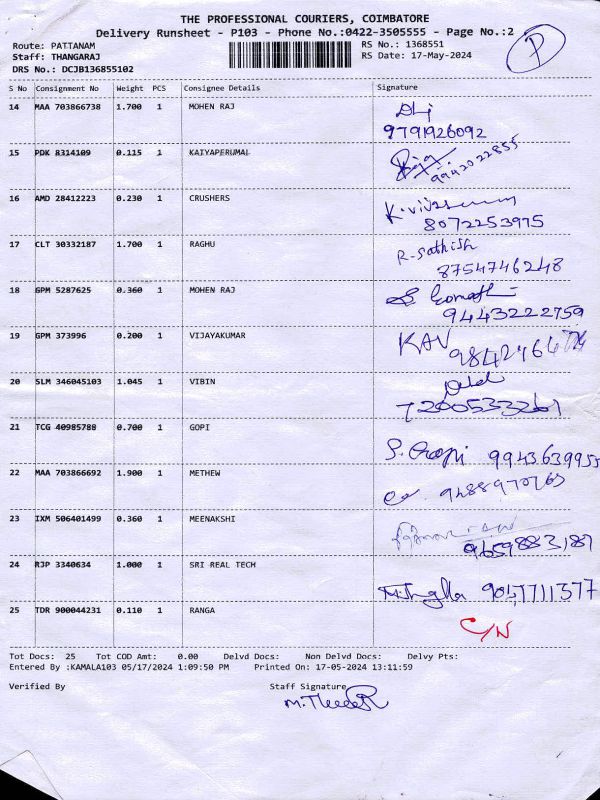 THE PROFESSIONAL COURIERS, COIMBATORE
Delivery Runsheet - P103 - Phone No.:0422-3505555 - Page No.:2
P
Route: PATTANAM RS No.: 1368551
Staff: THANGARAJ RS Date: 17-May-2024
DRS No.: DCJB136855102
S No Consignment No Weight PCS Consignee Details Signature
14 MAA 703866738 1.700 1 MOHEN RAJ
9791926092
15 PDK 8314109 0.115 1 KAIYAPERUMAL
9942022855
16 AMD 28412223 0.230 1 CRUSHERS
8072253975
17 CLT 30332187 1.700 1 RAGHU R-Sathish
8754746248
18 GPM 5287625 0.360 1 MOHEN RAJ
9443222759
19 GPM 373996 0.200 1 VIJAYAKUMAR KAV
20 SLM 346045103 1.045 1 VIBIN
7200533261
21 TCG 40985788 0.700 1 GOPI S. Gopi 9943639955
22 MAA 703866692 1.900 1 METHEW
9488970763
23 IXM 506401499 0.360 1 MEENAKSHI
9659883187
24 RJP 3340634 1.000 1 SRI REAL TECH
25 TDR 900044231 0.110 1 RANGA C/N
Tot Docs: 25 Tot COD Amt: 0.00 Delvd Docs: Non Delvd Docs: Delvy Pts:
Entered By :KAMALA103 05/17/2024 1:09:50 PM Printed On: 17-05-2024 13:11:59
Verified By Staff Signature